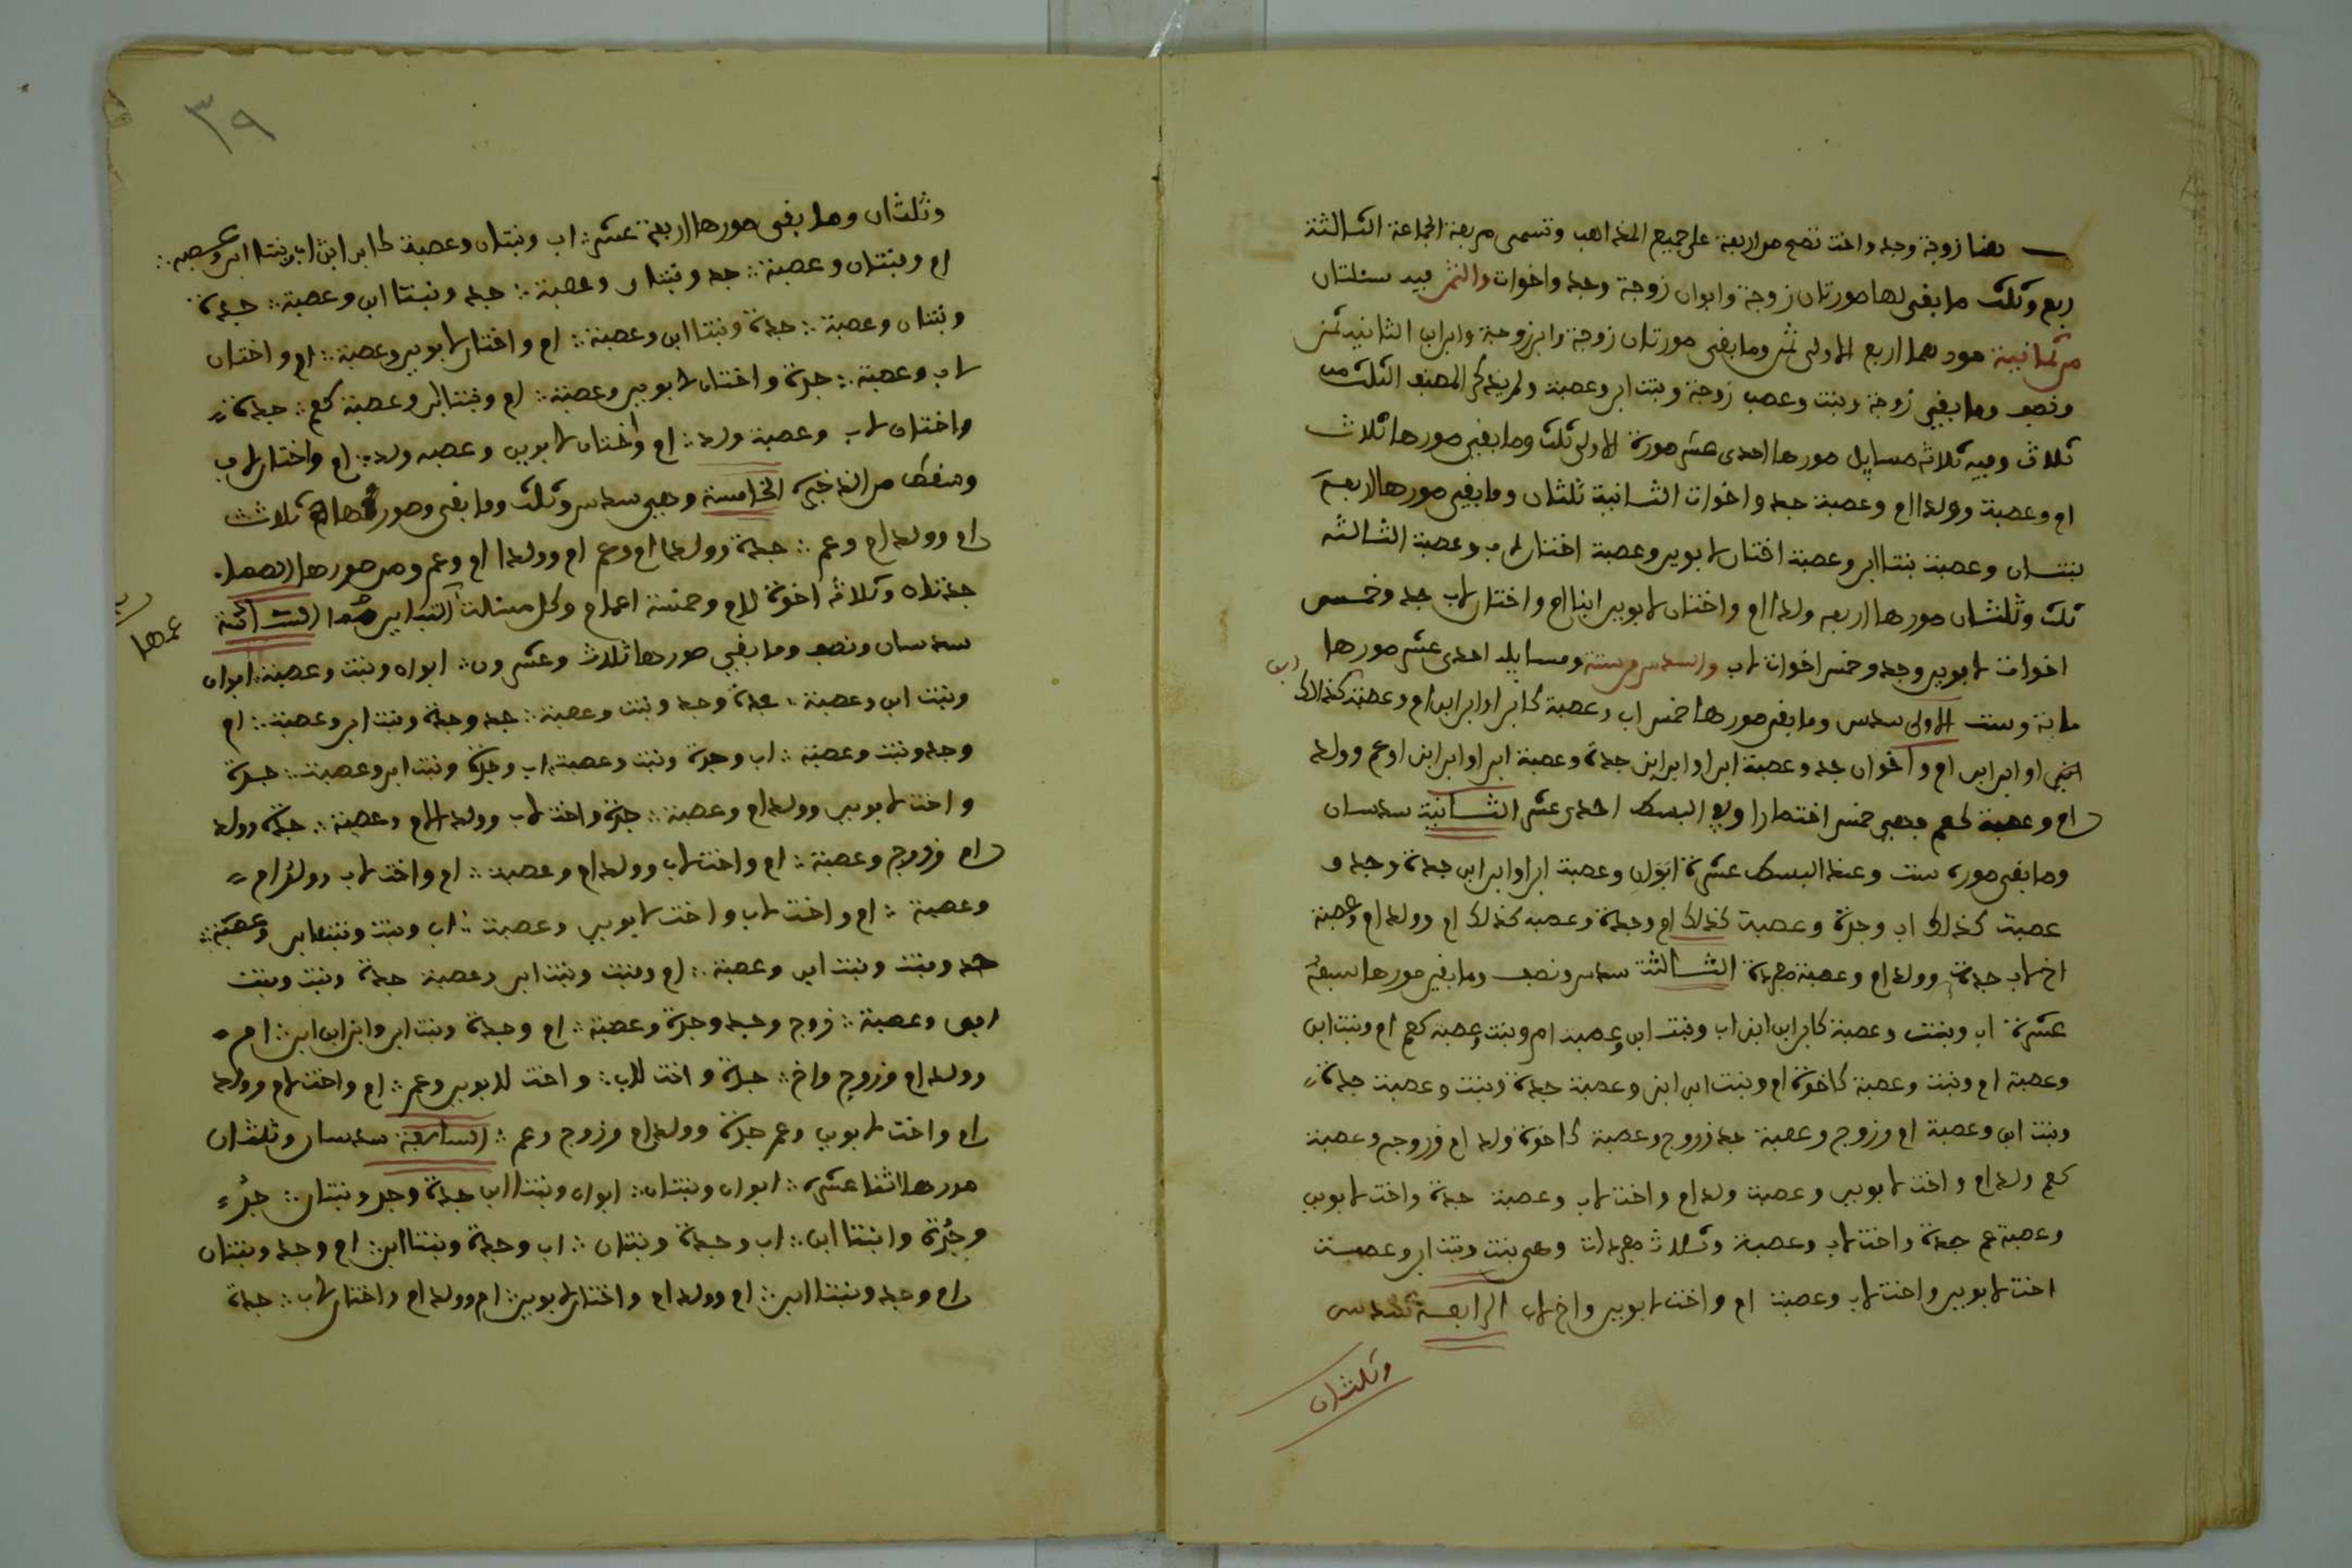 زوجة وجد واخت تصح من اربعة على جميع المذاهب وتسمى مربعة الجماعة الثالثة
ربع وثلث ما بقي لها صورتان زوجة وابوان زوجة وجد واخوات والثمن فيه مسئلتان
من ثمانية صورهما اربع الاولى ثمن وما بقي صورتان زوجة وابن زوجة وابن ابن الثانية ثمن
ونصف وما بقي زوجة وبنت وعصب زوجة وبنت ابن وعصبة ولم يذكر المصنف الثلث من
ثلاث وفيه ثلاثة مسايل صورها احدى عشر صورة الاولى ثلث وما بقي صورها ثلاث
ام وعصبة وولدا ام وعصبة جد واخوات الثانية ثلثان وما بقي صورها اربعة
بنتان وعصبة بنتا ابن وعصبة اختان لابوين وعصبة اختان لاب وعصبة الثالثة
ثلث وثلثان صورها اربعه ولدا ام واختان لابوين ابنا ام واختان لاب جد وخمس
اخوات لابوين وجد وخمس اخوات لاب والسدس من ستة ومسايله احدى عشر صورها
ماية وست الاولى سدس وما بقي صورها خمس اب وعصبة كابن او ابن ابن ام وعصبة كذلك
او ابن ابن ام واخوان جد وعصبة ابن او ابن ابن جدة وعصبة ابن او ابن ابن او عم وولد
ام وعصبة كعم فهي خمس اختصارا وفي البسط احدى عشر الثانية سدسان
وما بقي صوره ست وعند البسط عشرة ابوان وعصبة ابن او ابن ابن جدة وجد و
عصبة كذلك اب وجدة وعصبة كذلك ام وجدة وعصبه كذلك ام وولد ام وعصبة
اخ لاب جدة وولد ام وعصبة الثالثة سدس ونصف وما بقي صورها سبعة
عشرة اب وبنت وعصبة كابن ابن ابن اب وبنت ابن وعصبة ام وبنت وعصبة كعم ام وبنت ابن
وعصبة ام وبنت وعصبة كاخوة ام وبنت ابن ابن وعصبة جدة وبنت وعصبة جدة
وبنت ابن وعصبة ام وزوج وعصبة جد وزوج وعصبة كاخوة ولد ام وزوج وعصبة
كعم ولد ام واخت لابوين وعصبة ولد ام واخت لاب وعصبة جدة واخت لابوين
وعصبة عم جدة واخت لاب وعصبة وثلاث وهي بنت وبنت ابن وعصبة
اخت لابوين واخت لاب وعصبة ام واخت لابوين واخ لاب الرابعة سدس
وثلثان
٣٩
وثلثان وما بقي صورها اربعة عشر اب وبنتان وعصبة كابن ابن اب وبنتا ابن وعصبه
ام وبنتان وعصبة جد وبنتان وعصبة جد وبنتا ابن وعصبة جدة
وبنتان وعصبة جدة وبنتا ابن وعصبة ام واختان لابوين وعصبة ام واختان
لاب وعصبة جدة واختان لابوين وعصبة ام وبنتا ابن وعصبة كعم جدة
واختان لاب وعصبة ولد ام واختان لابوين وعصبه ولد ام واختان لاب
وسقط من الذخيرة الخامسة وهي سدس وثلث وما بقي وصورها ثلاث
ام وولد ام وعم جدة وولدا ام وعم ام وولدا ام وعم ومن صورها
جدتان وثلاثة اخوة لام وخمسة اعمام وكل السادسة
عمها
سدسان ونصف وما بقي صورها ثلاث وعشرون ابوان وبنت وعصبة ابوان
وبنت ابن وعصبة جدة وجد وبنت وعصبة جد وجدة وبنت ابن وعصبة ام
وجد وبنت وعصبة اب وجدة وبنت وعصبة اب وجدة وبنت ابن وعصبة جدة
واخت لابوين وولد ام وعصبة جدة واخت لاب وولد الام وعصبة جدة وولد
ام وزوج وعصبة ام واخت لاب وولد ام وعصبة ام واخت لاب وولد ام
وعصبة ام واخت لاب واخت لابوين وعصبة اب وبنت وبنت ابن وعصبة
جد وبنت وبنت ابن وعصبة ام وبنت وبنت ابن وعصبة جدة وبنت وبنت
ابن وعصبة زوج وجد وجدة وعصبة ام وجدة وبنت ابن وابن ابن ابن ام
وولد ام وزوج واخ جدة واخت للاب واخت للابوين وعم ام واخت لام وولد
ام واخت لابوين وعم جدة وولد ام وزوج وعم السابعة سدسان وثلثان
صورها اثنا عشر ابوان وبنتان ابوان وبنتا ابن جدة وجد وبنتان جد
وجدة وابنتا ابن اب وجدة وبنتان اب وجدة وبنتا ابن ام وجد وبنتان
ام وجد وبنتا ابن ام وولد ام واختان لابوين ام وولد ام واختان لاب جدة